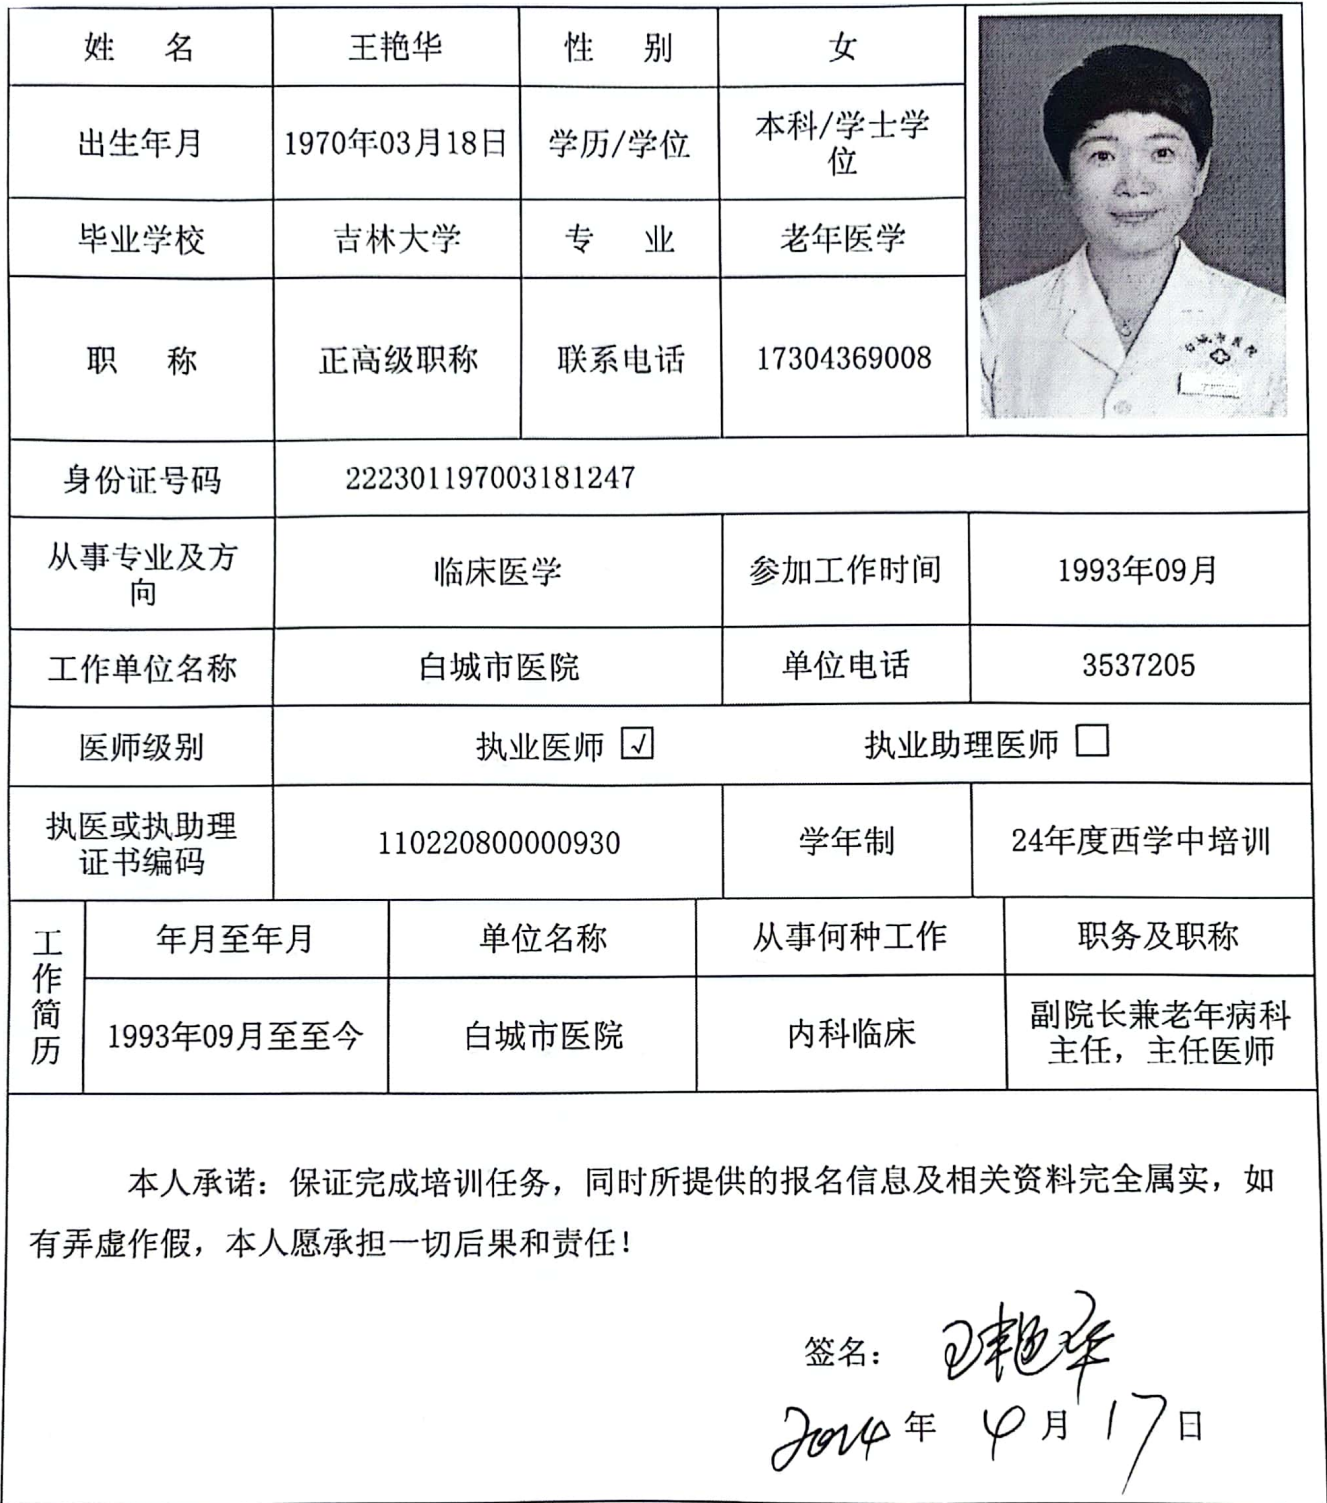 姓 名 王艳华 性 别 女
出生年月 1970年03月18日 学历/学位 本科/学士学
位
毕业学校 吉林大学 专 业 老年医学
职 称 正高级职称 联系电话 17304369008
白城市医院
身份证号码 222301197003181247
从事专业及方
向 临床医学 参加工作时间 1993年09月
工作单位名称 白城市医院 单位电话 3537205
医师级别 执业医师 ☑ 执业助理医师 □
执医或执助理
证书编码 110220800000930 学年制 24年度西学中培训
工作简历
年月至年月 单位名称 从事何种工作 职务及职称
1993年09月至至今 白城市医院 内科临床 副院长兼老年病科
主任，主任医师
本人承诺：保证完成培训任务，同时所提供的报名信息及相关资料完全属实，如
有弄虚作假，本人愿承担一切后果和责任！
签名：王艳华
2024年 4月 17日